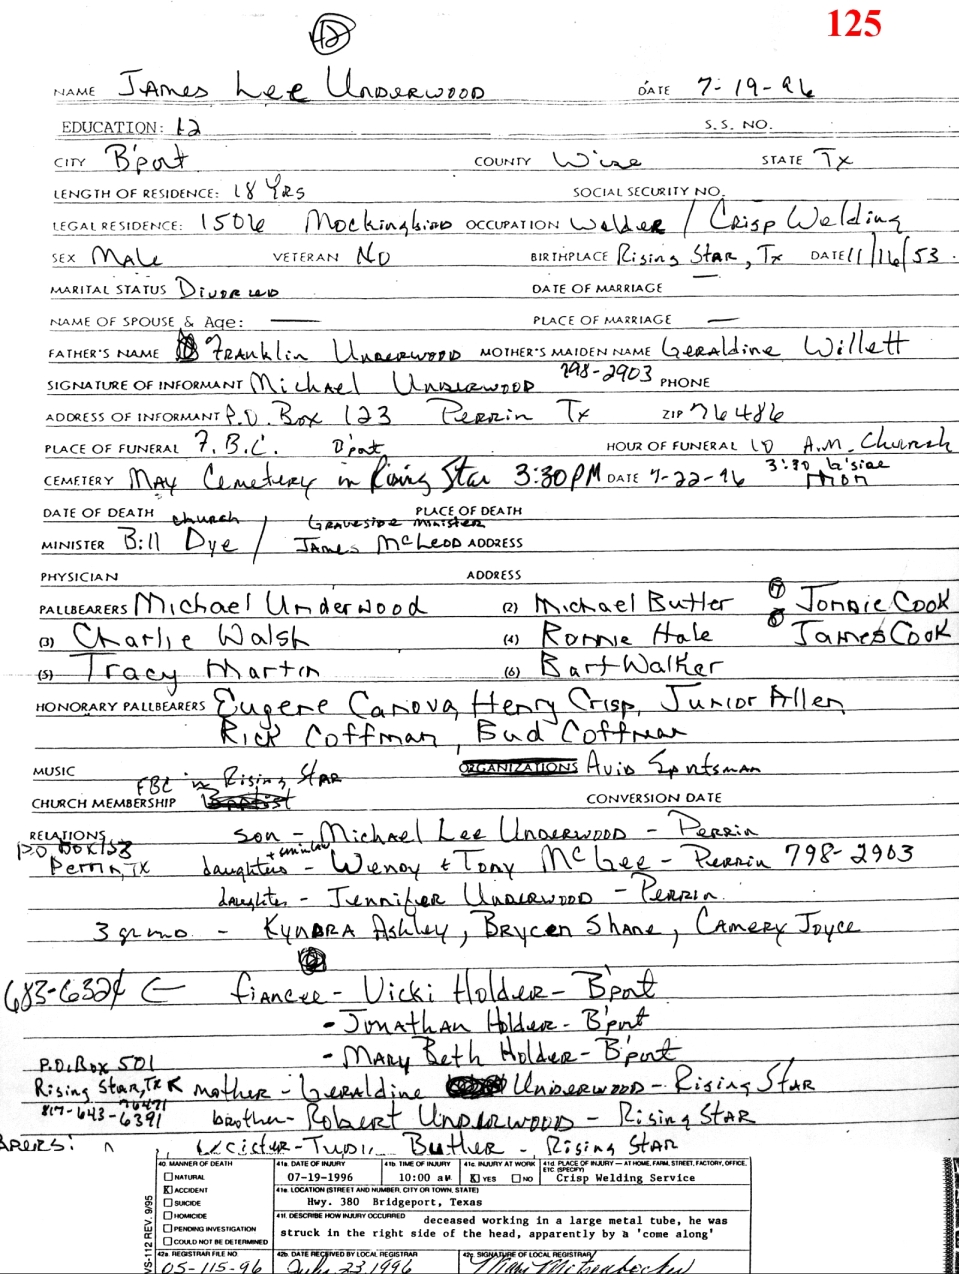 125
42
NAME James Lee Underwood DATE 7-19-96
EDUCATION: 12 S.S. NO.
CITY B'port COUNTY Wise STATE Tx
LENGTH OF RESIDENCE: 18 Yrs SOCIAL SECURITY NO.
LEGAL RESIDENCE: 1506 Mockingbird OCCUPATION Welder / Crisp Welding
SEX Male VETERAN No BIRTHPLACE Rising Star, Tx DATE 11/16/53
MARITAL STATUS Divorced DATE OF MARRIAGE —
NAME OF SPOUSE & Age: — PLACE OF MARRIAGE —
FATHER'S NAME Franklin Underwood MOTHER'S MAIDEN NAME Geraldine Willett
SIGNATURE OF INFORMANT Michael Underwood 798-2903 PHONE
ADDRESS OF INFORMANT P.O. Box 123 Perrin Tx ZIP 76486
PLACE OF FUNERAL F.B.C. B'port HOUR OF FUNERAL 10 A.M. Church
3:30 G'side
CEMETERY May Cemetery in Rising Star 3:30 PM DATE 7-22-96 Mon
DATE OF DEATH PLACE OF DEATH
church / Graveside minister
MINISTER Bill Dye / James McLeod ADDRESS
PHYSICIAN ADDRESS
PALLBEARERS Michael Underwood (2) Michael Butler (7) Jonnie Cook
(3) Charlie Walsh (4) Ronnie Hale (8) James Cook
(5) Tracy Martin (6) Bart Walker
HONORARY PALLBEARERS Eugene Canova, Henry Crisp, Junior Allen,
Rick Coffman, Bud Coffman
MUSIC ORGANIZATIONS Avid Sportsman
FBC in Rising Star
CHURCH MEMBERSHIP Baptist CONVERSION DATE
RELATIONS son - Michael Lee Underwood - Perrin
P.O Box 123
Perrin, TX daughters + son in law - Wendy & Tony McGee - Perrin 798-2903
daughter - Jennifer Underwood - Perrin
3 grand - Kyndra Ashley, Brycen Shane, Camery Joyce
683-6324 ← fiancee - Vicki Holder - B'port
- Jonathan Holder - B'port
- Mary Beth Holder - B'port
P.O. Box 501
Rising Star, Tx mother - Geraldine Underwood - Rising Star
76471
817-643-6391 brother - Robert Underwood - Rising Star
Butler - Rising Star
40. MANNER OF DEATH
NATURAL
X ACCIDENT
SUICIDE
HOMICIDE
PENDING INVESTIGATION
COULD NOT BE DETERMINED
41a. DATE OF INJURY 07-19-1996
41b. TIME OF INJURY 10:00 aM.
41c. INJURY AT WORK X YES NO
41d. PLACE OF INJURY — AT HOME, FARM, STREET, FACTORY, OFFICE, ETC. (SPECIFY) Crisp Welding Service
41e. LOCATION (STREET AND NUMBER, CITY OR TOWN, STATE)
Hwy. 380 Bridgeport, Texas
41f. DESCRIBE HOW INJURY OCCURRED deceased working in a large metal tube, he was
struck in the right side of the head, apparently by a 'come along'
VS-112 REV. 9/95
42a. REGISTRAR FILE NO 05-115-96
42b. DATE RECEIVED BY LOCAL REGISTRAR July 23, 1996
42c. SIGNATURE OF LOCAL REGISTRAR